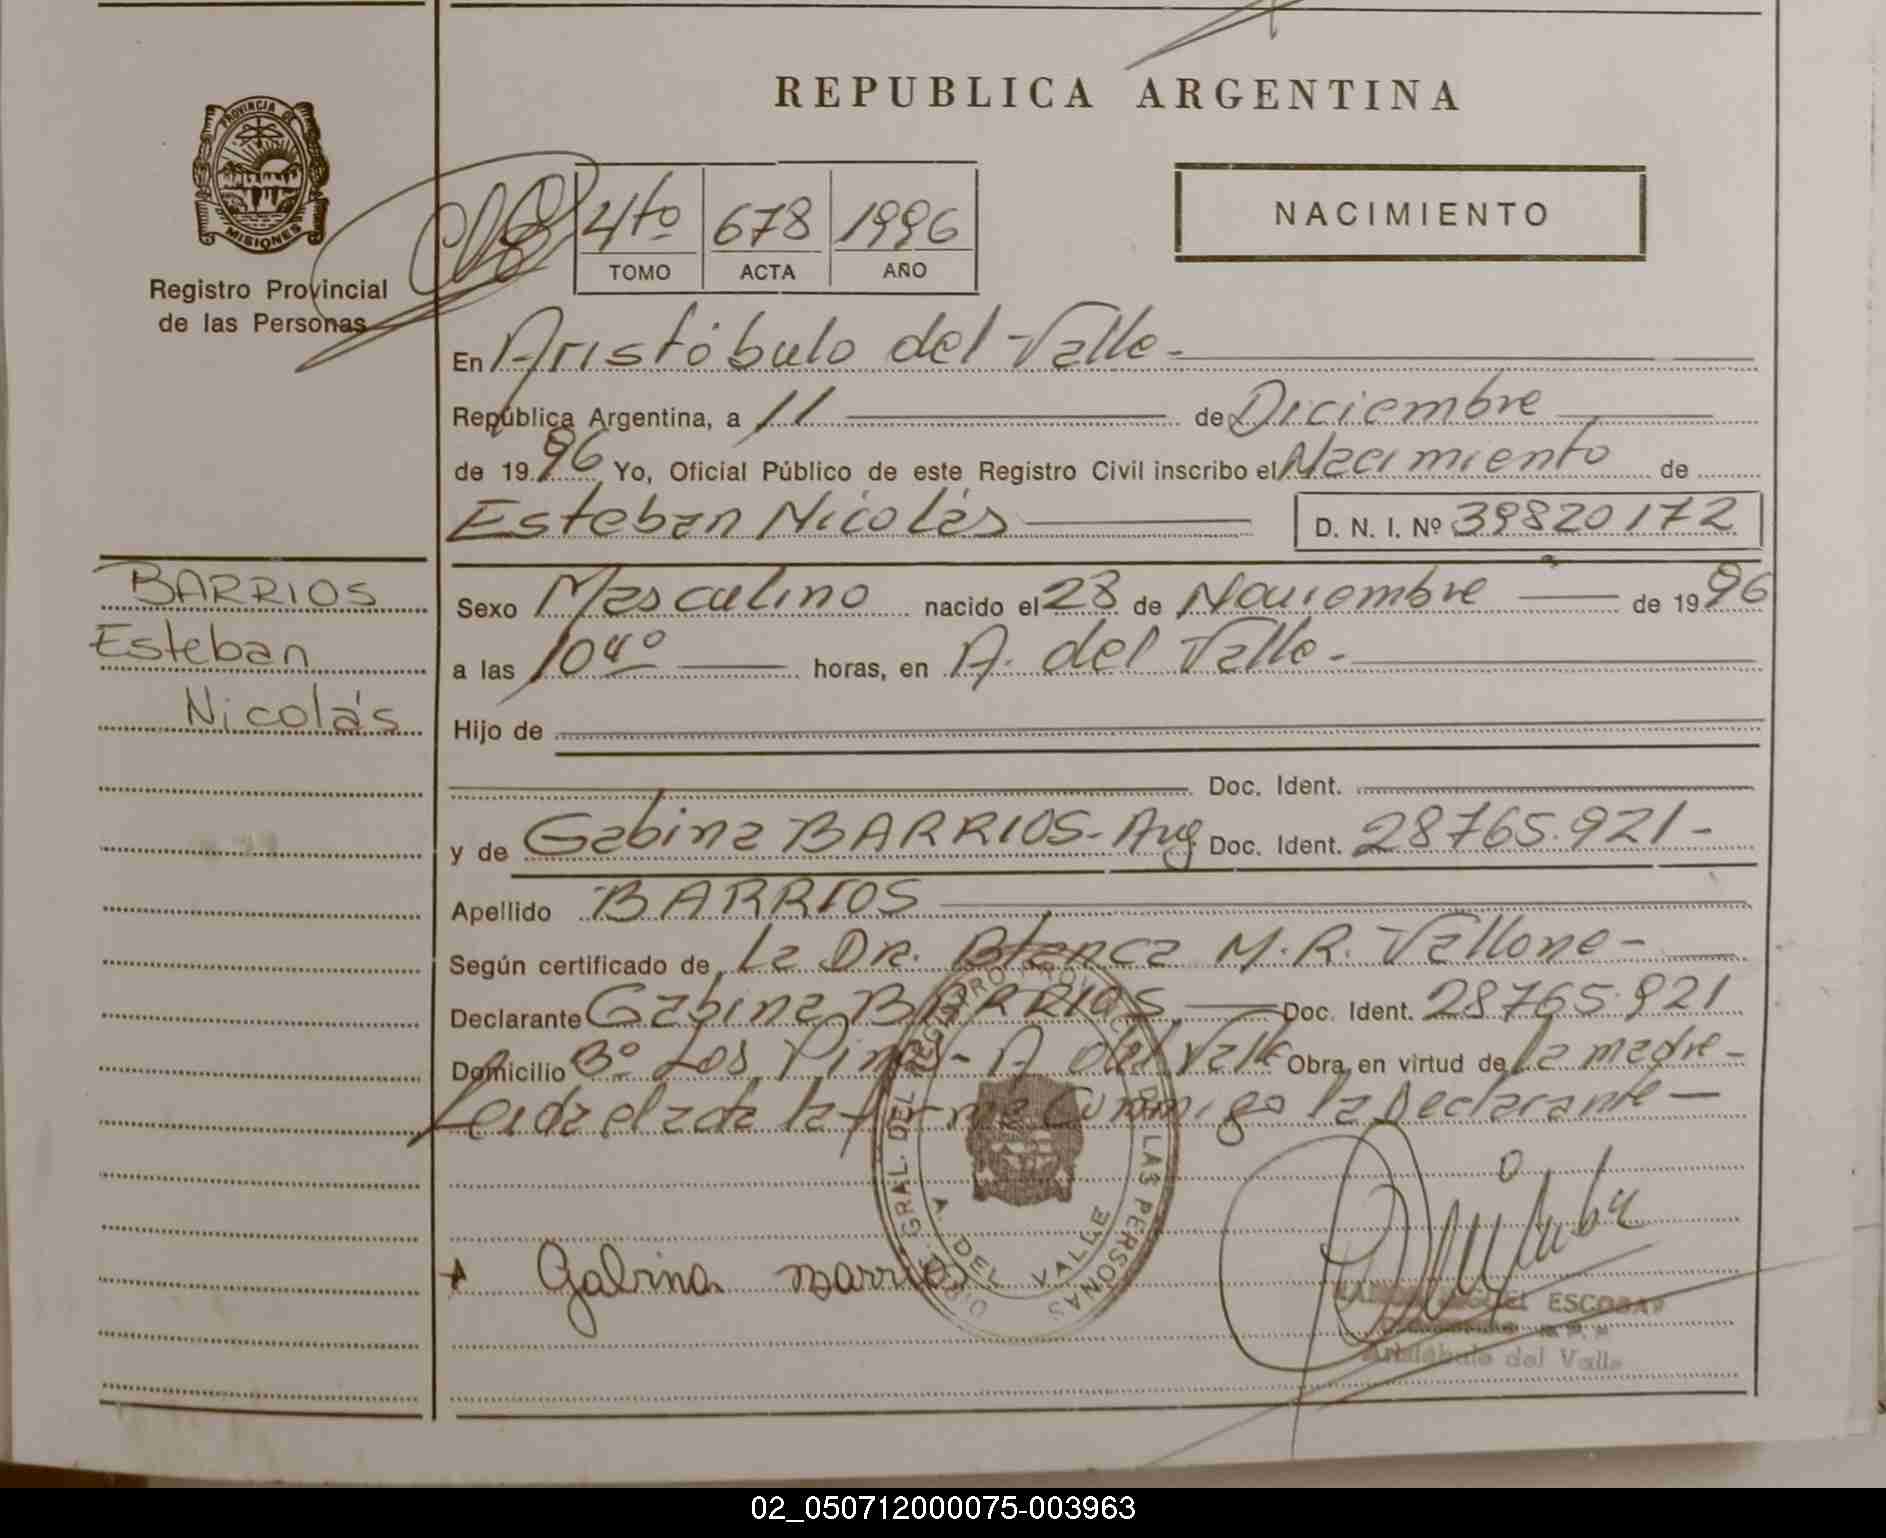 REPUBLICA ARGENTINA
PROVINCIA DE
MISIONES
Registro Provincial
de las Personas
4to 678 1996
TOMO ACTA AÑO
NACIMIENTO
En Aristóbulo del Valle-
República Argentina, a 11 de Diciembre
de 1996 Yo, Oficial Público de este Registro Civil inscribo el Nacimiento de
Esteban Nicolás D. N. I. Nº 39820172
BARRIOS
Esteban
Nicolás
Sexo Masculino nacido el 28 de Noviembre de 1996
a las 10 40 horas, en A. del Valle-
Hijo de
Doc. Ident.
y de Gabina BARRIOS- Arg Doc. Ident. 28765.921-
Apellido BARRIOS
Según certificado de La Dra. Blanca M.R. Vallone-
Declarante Gabina BARRIOS Doc. Ident. 28765.921
Domicilio Bº Los Pinos- A del Valle Obra en virtud de la madre-
Leida el acta la firma Conmigo la Declarante-
DIREC. GRAL. DEL REGISTRO PROVINCIAL DE LAS PERSONAS
A. DEL VALLE
Gabina Barrios
MIGUEL ESCOBAR
Aristóbulo del Valle
02_050712000075-003963